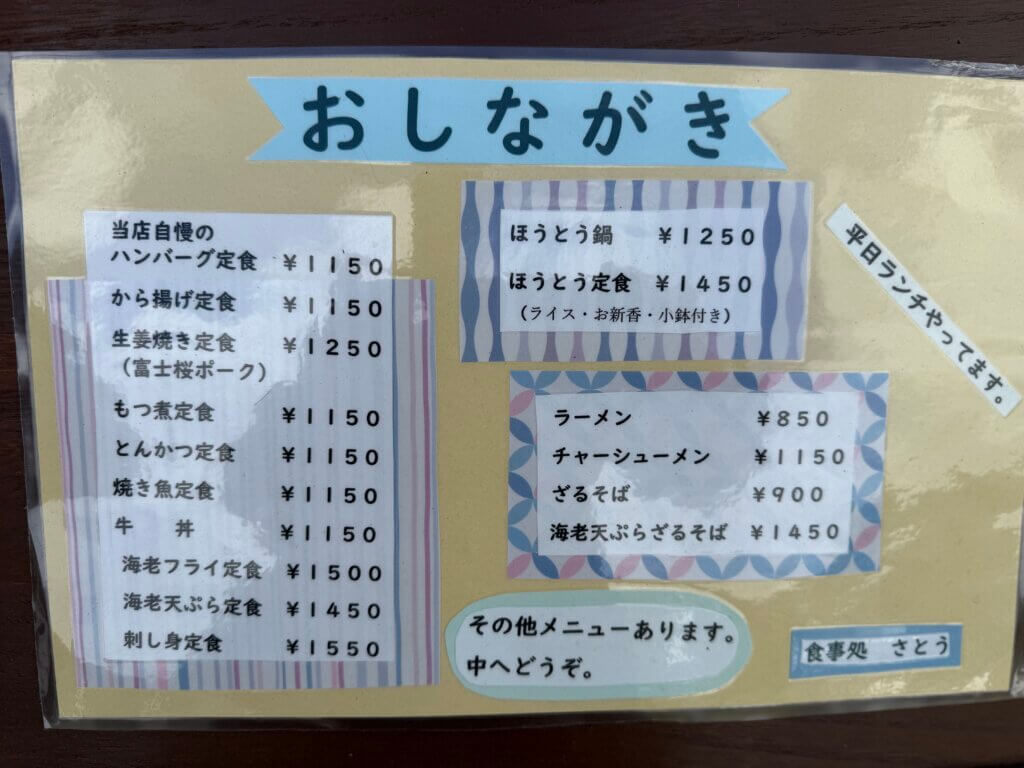 おしながき
当店自慢の
ハンバーグ定食 ¥1150
から揚げ定食 ¥1150
生姜焼き定食 ¥1250
(富士桜ポーク)
もつ煮定食 ¥1150
とんかつ定食 ¥1150
焼き魚定食 ¥1150
牛 丼 ¥1150
海老フライ定食 ¥1500
海老天ぷら定食 ¥1450
刺し身定食 ¥1550
ほうとう鍋 ¥1250
ほうとう定食 ¥1450
(ライス・お新香・小鉢付き)
平日ランチやってます。
ラーメン ¥850
チャーシューメン ¥1150
ざるそば ¥900
海老天ぷらざるそば ¥1450
その他メニューあります。
中へどうぞ。
食事処 さとう